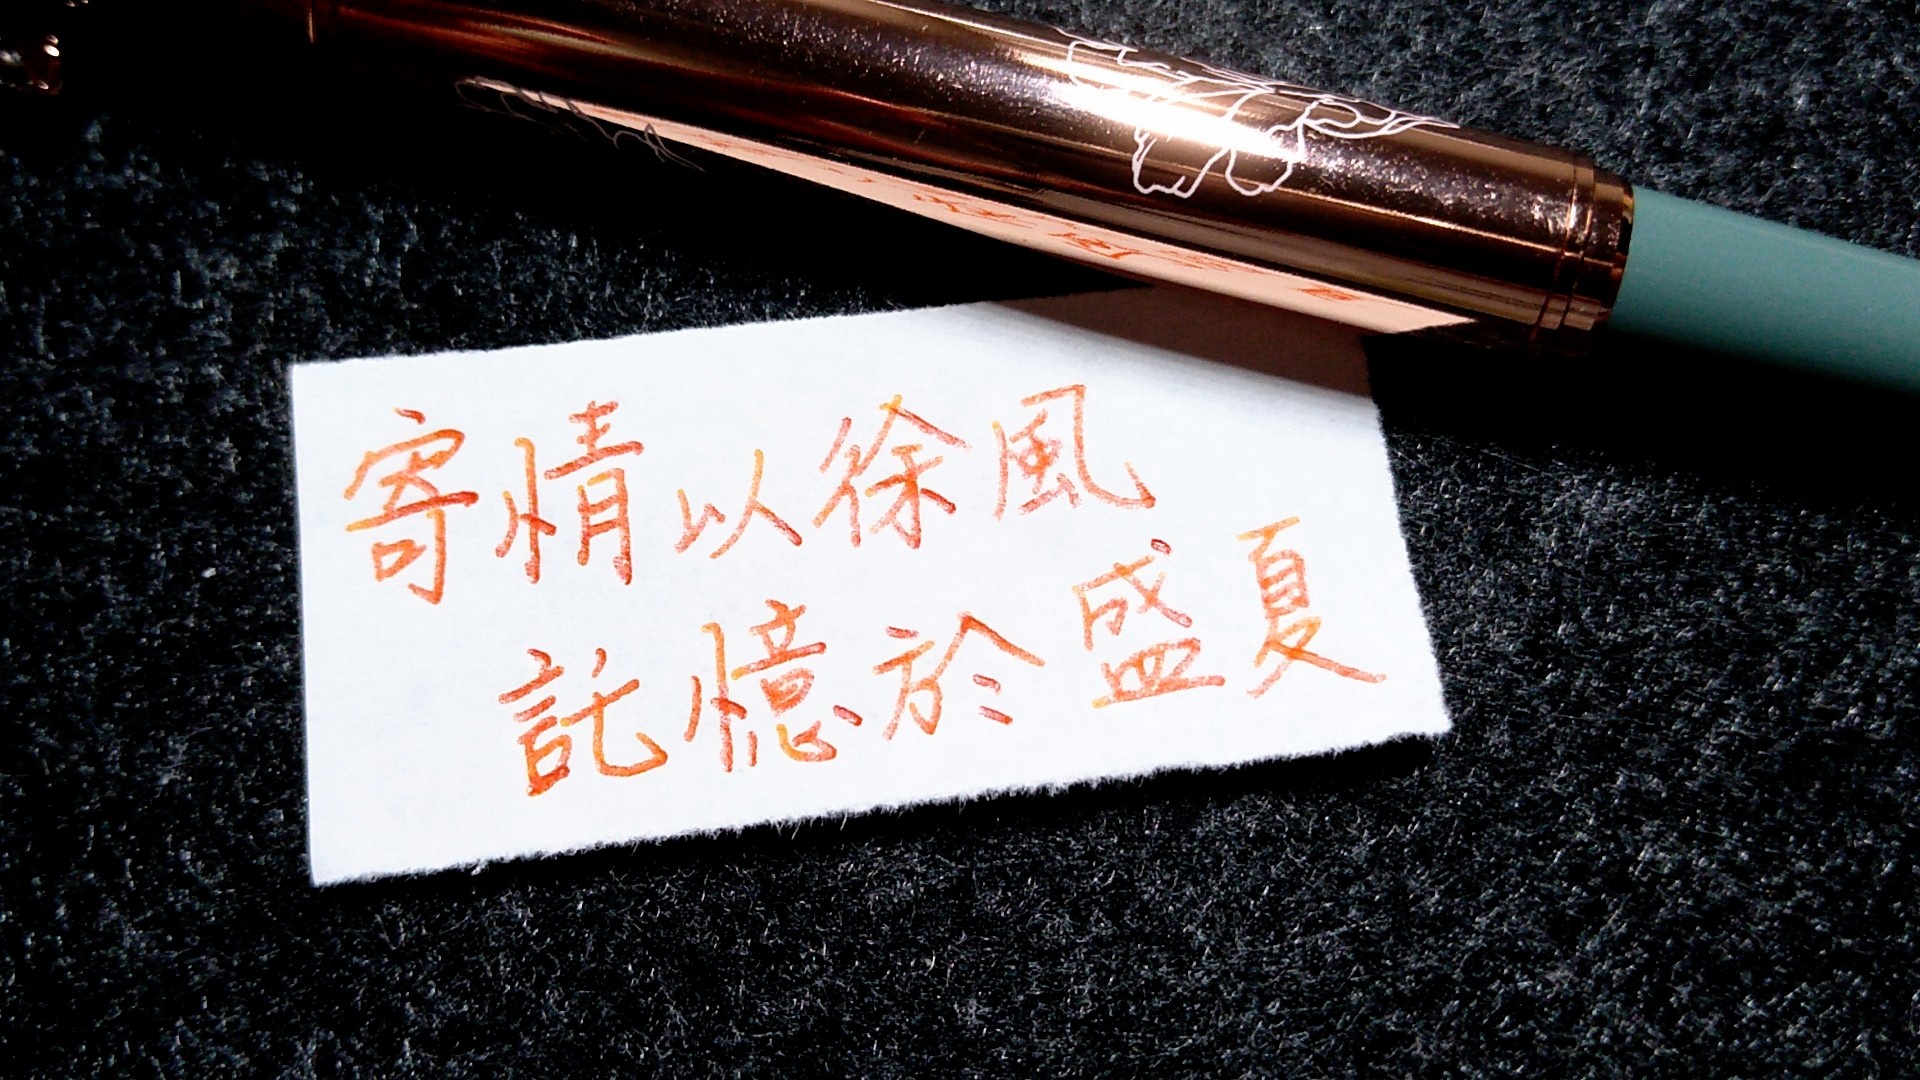 寄情以徐風
託憶於盛夏